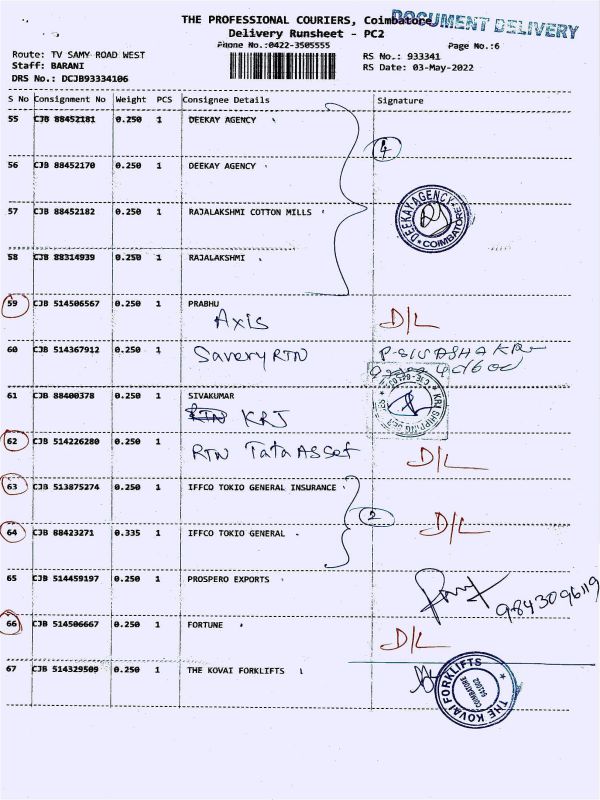 THE PROFESSIONAL COURIERS, Coimbatore
DOCUMENT DELIVERY
Delivery Runsheet - PC2
Phone No.:0422-3505555
Page No.:6
Route: TV SAMY ROAD WEST
RS No.: 933341
Staff: BARANI
RS Date: 03-May-2022
DRS No.: DCJB93334106
S No Consignment No Weight PCS Consignee Details Signature
55 CJB 88452181 0.250 1 DEEKAY AGENCY
4
56 CJB 88452170 0.250 1 DEEKAY AGENCY
DEEKAY AGENCY
* COIMBATORE *
57 CJB 88452182 0.250 1 RAJALAKSHMI COTTON MILLS
58 CJB 88314939 0.250 1 RAJALAKSHMI
59 CJB 514506567 0.250 1 PRABHU
Axis D/L
60 CJB 514367912 0.250 1 Savery RTN
61 CJB 88400378 0.250 1 SIVAKUMAR
RTN KRJ
KRM SHIPPING
62 CJB 514226280 0.250 1 RTN Tata Asset D/L
63 CJB 513875274 0.250 1 IFFCO TOKIO GENERAL INSURANCE
2
64 CJB 88423271 0.335 1 IFFCO TOKIO GENERAL D/L
65 CJB 514459197 0.250 1 PROSPERO EXPORTS
9843096119
66 CJB 514506667 0.250 1 FORTUNE D/L
67 CJB 514329509 0.250 1 THE KOVAI FORKLIFTS
THE KOVAI FORKLIFTS
COIMBATORE
641002